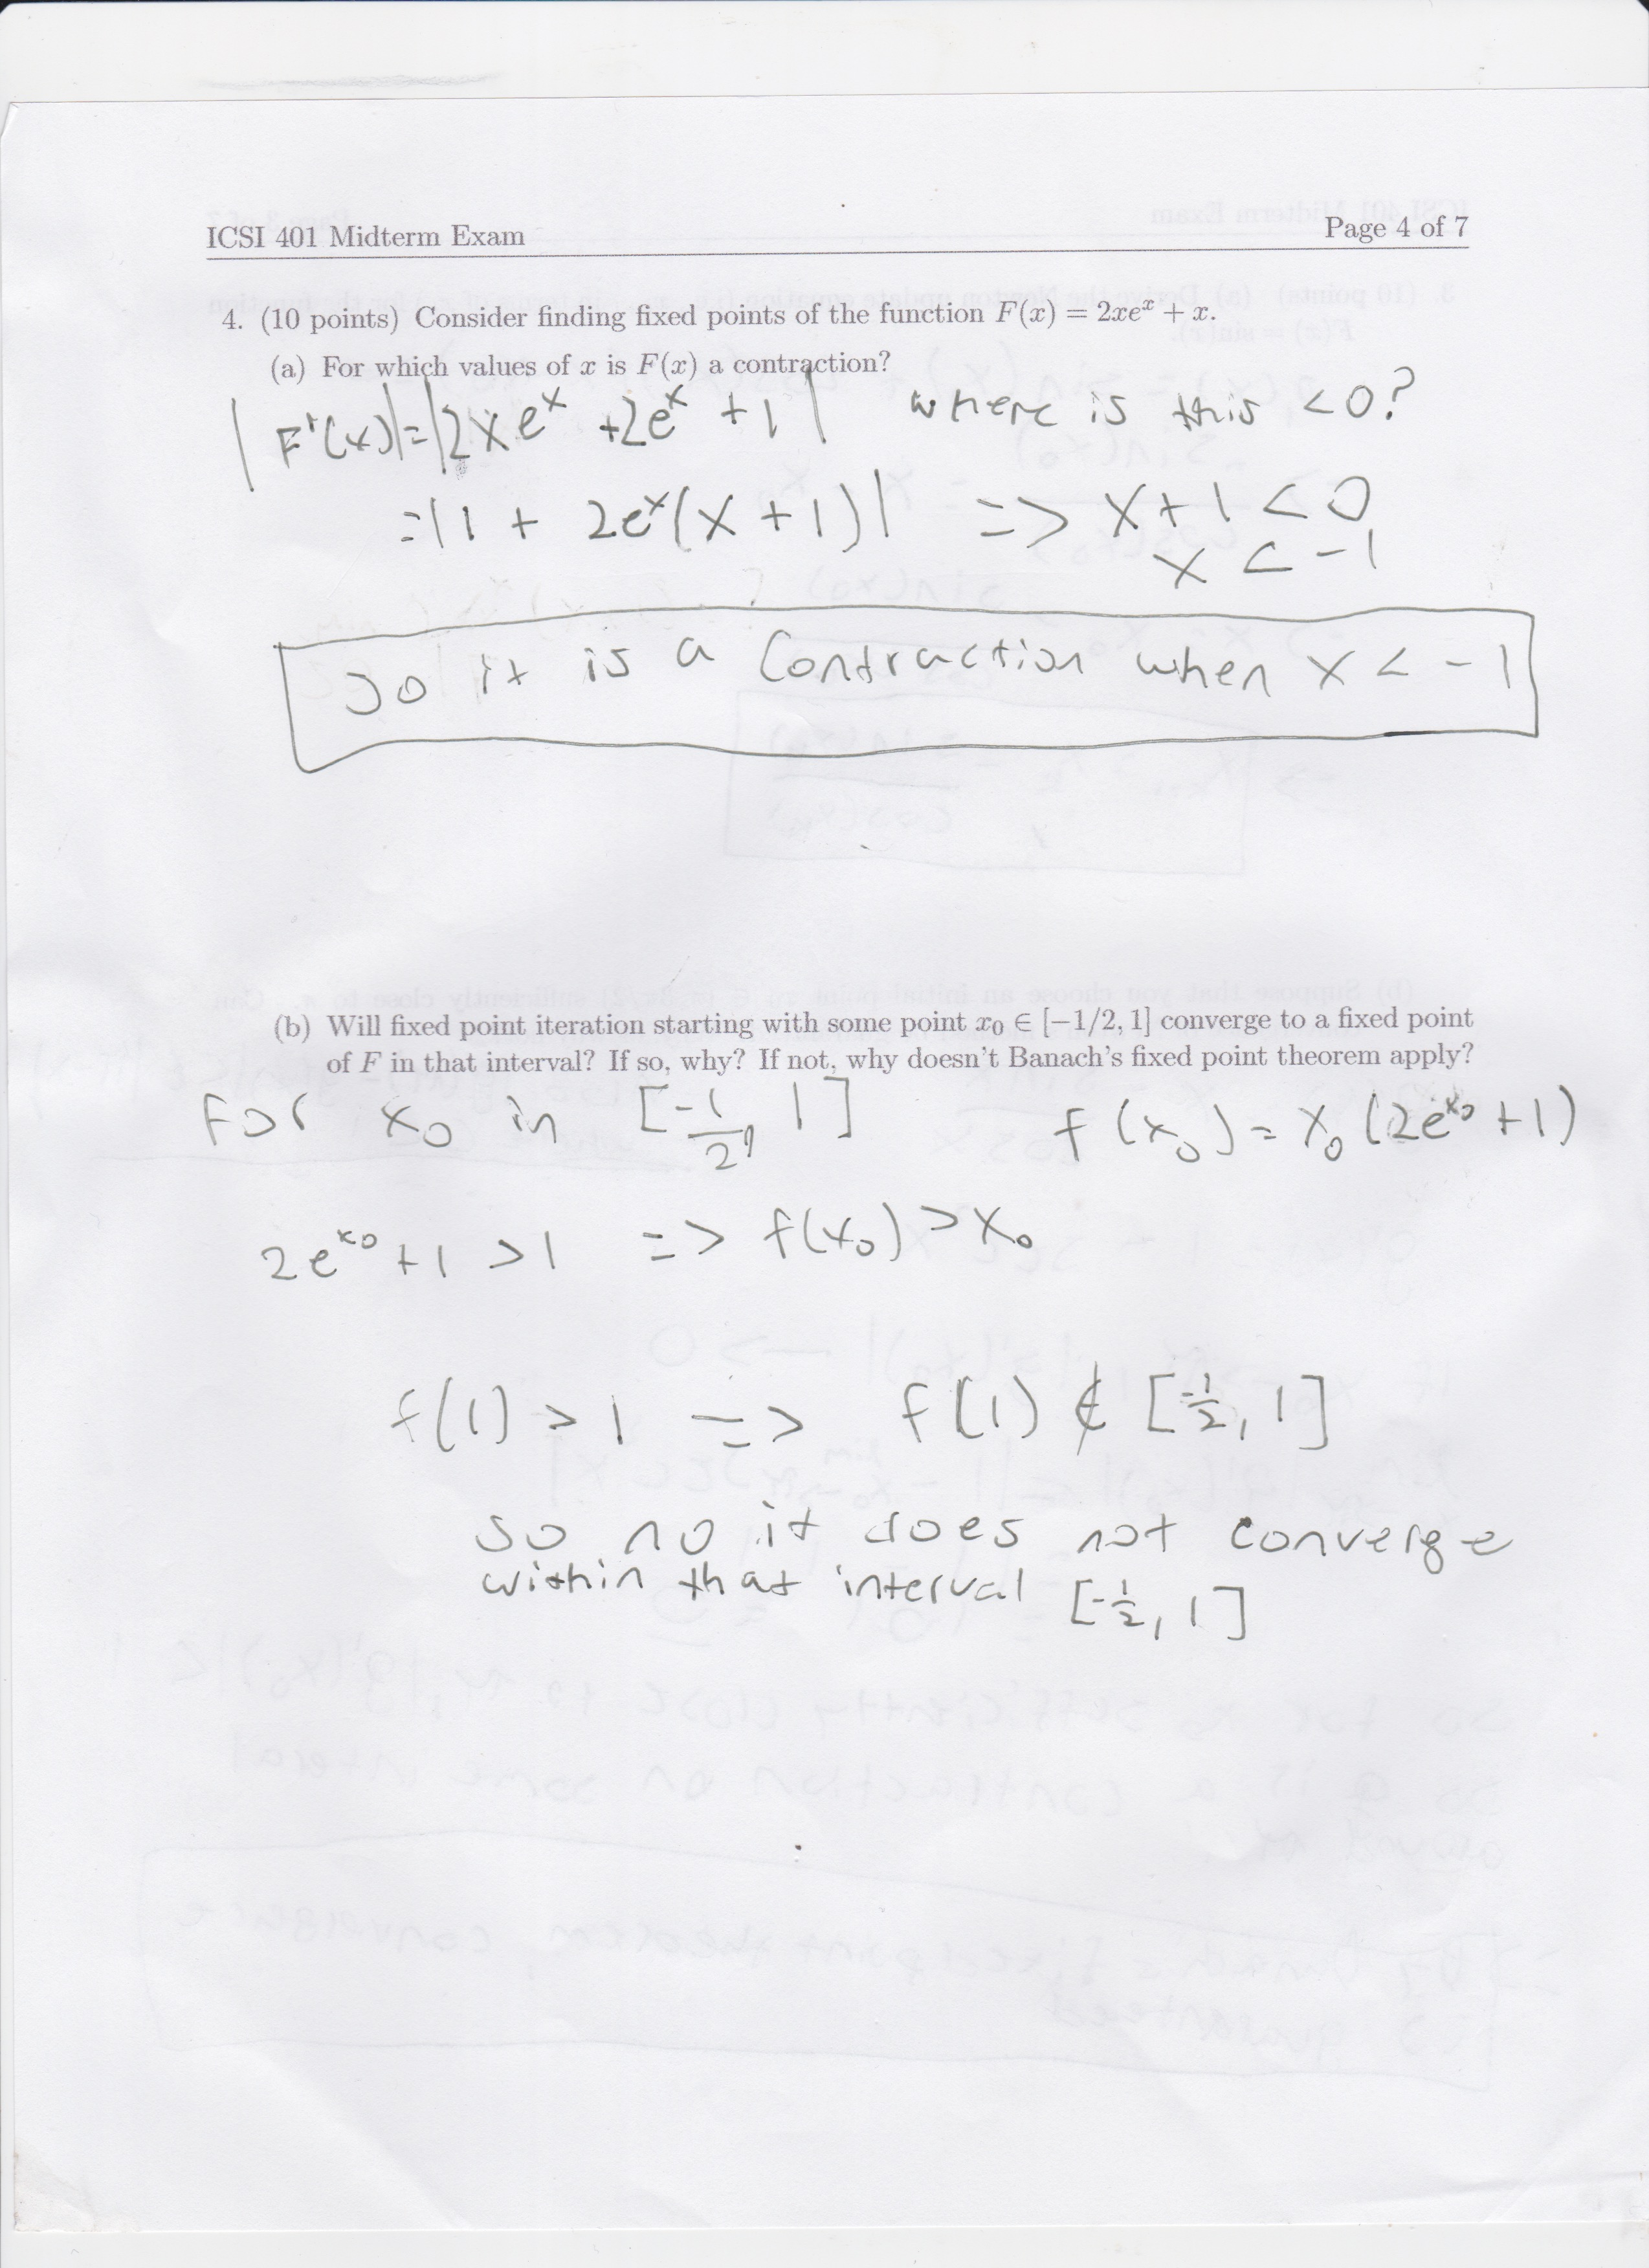 ICSI 401 Midterm Exam Page 4 of 7
4. (10 points) Consider finding fixed points of the function F(x) = 2xe^x + x.
(a) For which values of x is F(x) a contraction?
|F'(x)| = |2xe^x + 2e^x + 1| where is this < 0?
= |1 + 2e^x(x + 1)| => x + 1 < 0
x < -1
So it is a contraction when x < -1
(b) Will fixed point iteration starting with some point x₀ ∈ [−1/2, 1] converge to a fixed point
of F in that interval? If so, why? If not, why doesn't Banach's fixed point theorem apply?
For x₀ in [-1/2, 1] f(x₀) = x₀(2e^x₀ + 1)
2e^x₀ + 1 > 1 => f(x₀) > x₀
f(1) > 1 => f(1) ∉ [-1/2, 1]
so no it does not converge
within that interval [-1/2, 1]